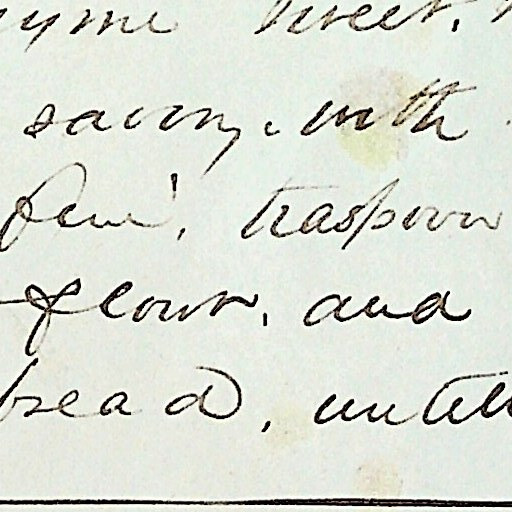 yme sweet.
savory. with
fine, teaspoon
flour, and
bread, untill